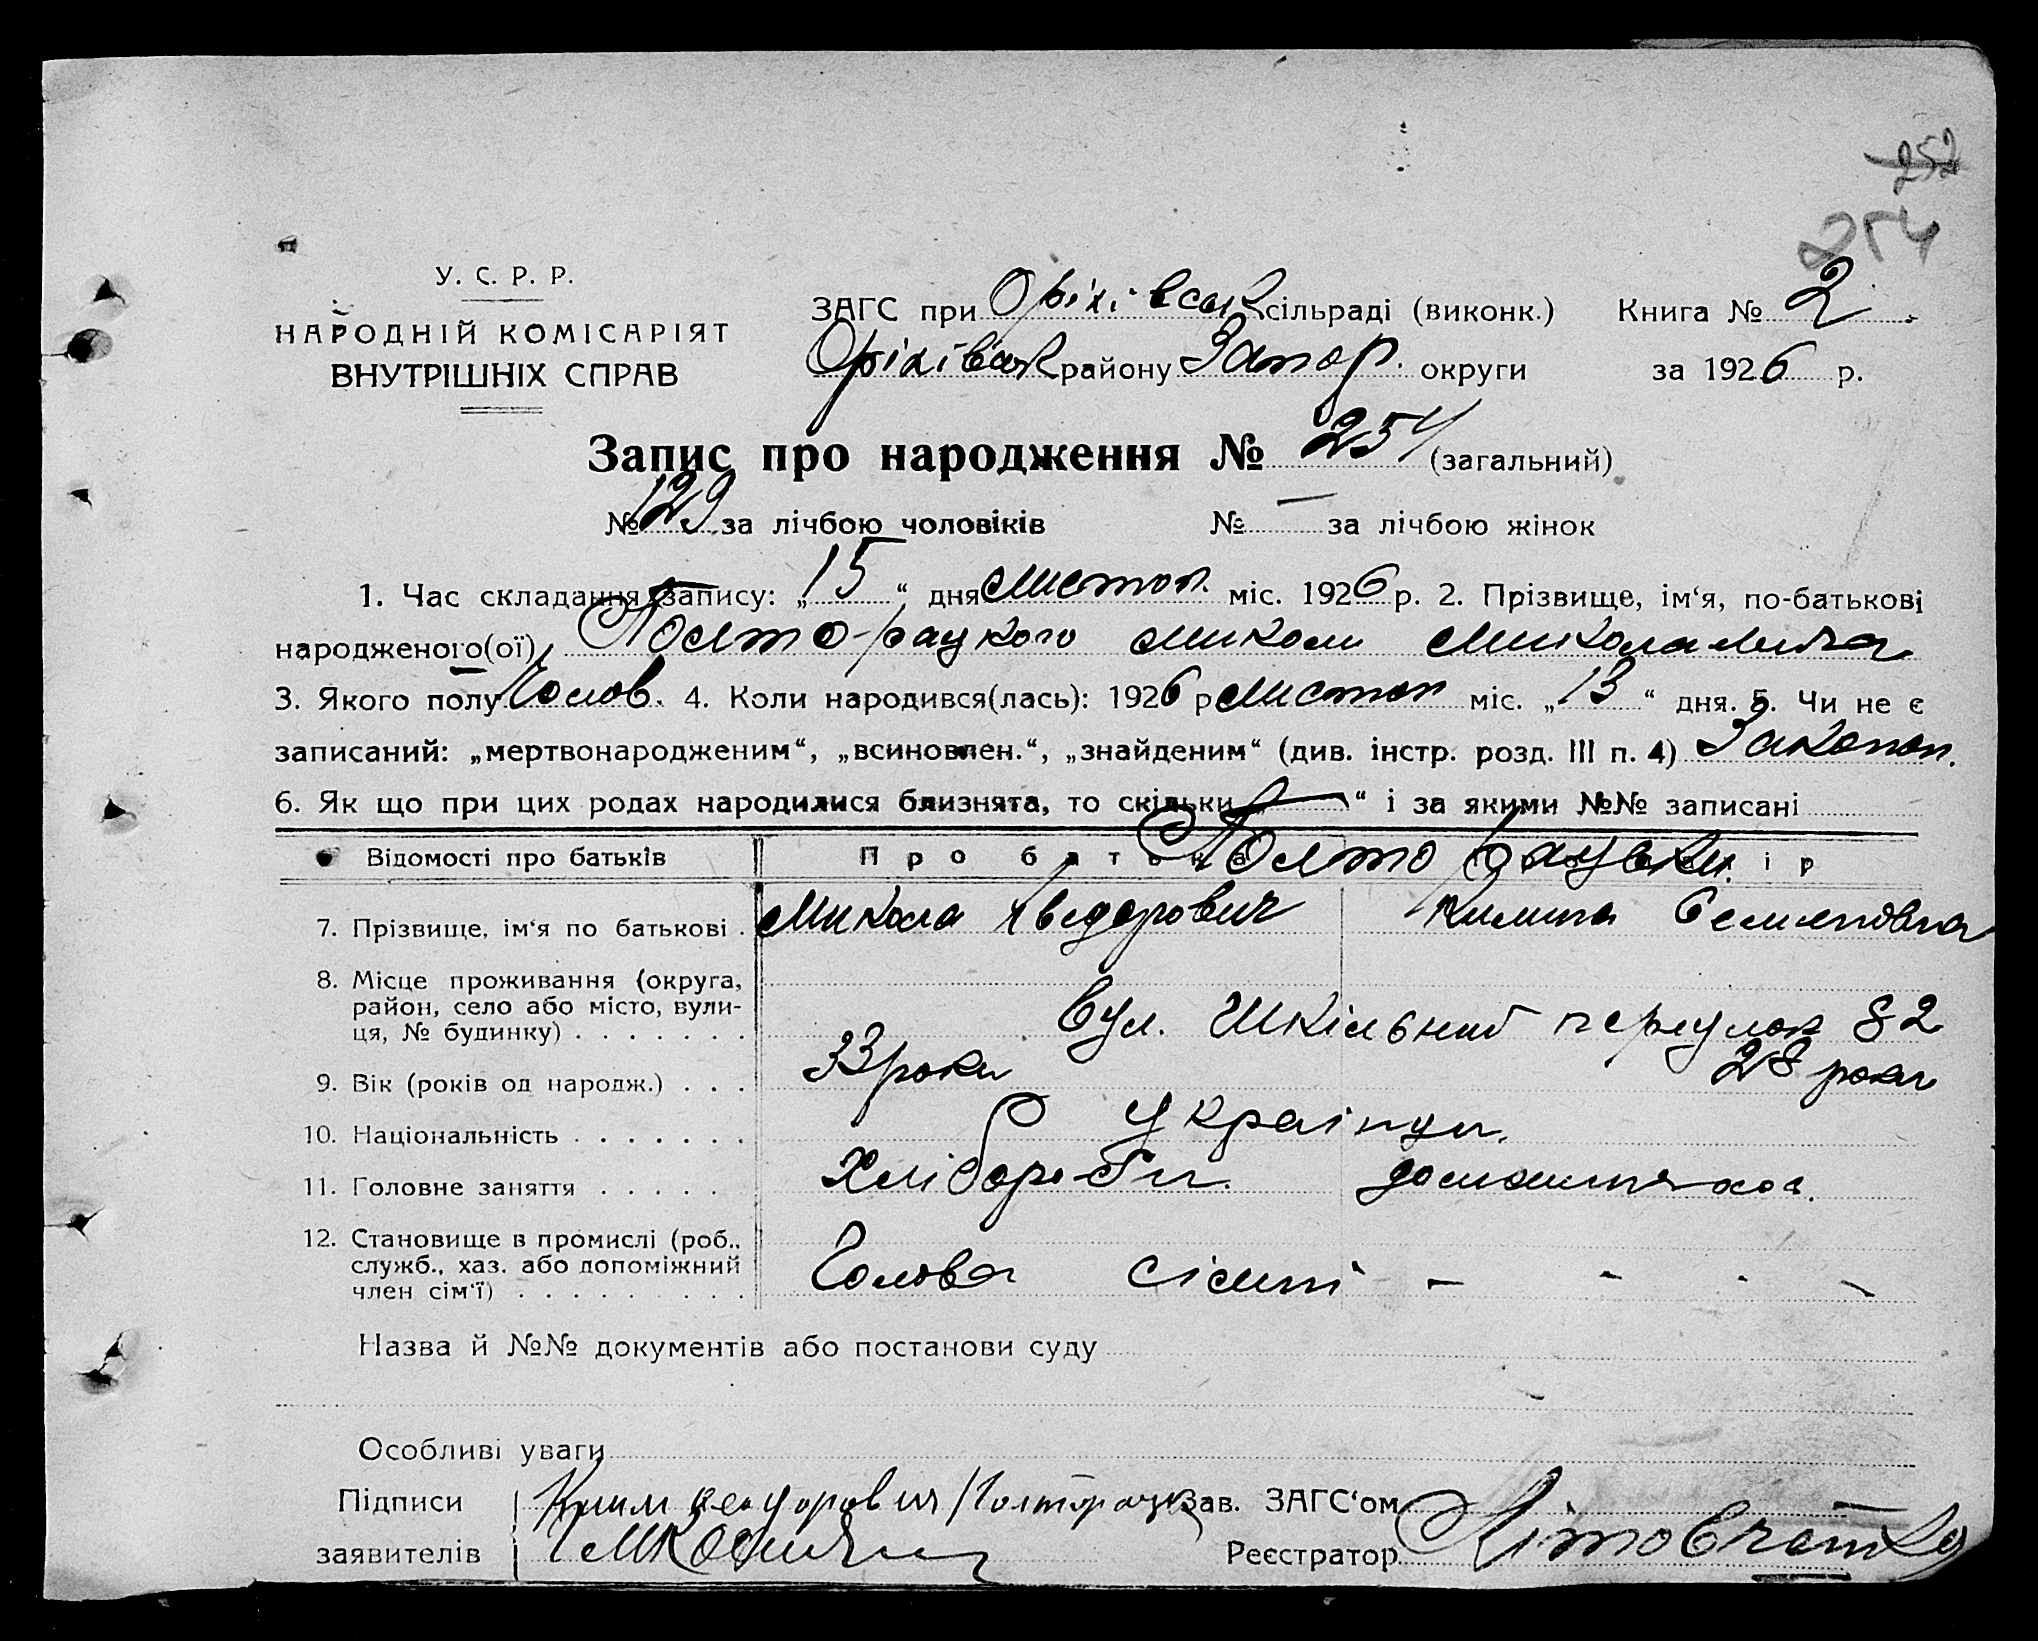 252
254
У. С. Р. Р.
НАРОДНІЙ КОМІСАРІЯТ
ВНУТРІШНІХ СПРАВ
ЗАГС при Оріхівськ сільраді (виконк.) Книга № 2
Оріхівськ району Запор. округи за 1926 р.
Запис про народження № 254 (загальний)
№ 129 за лічбою чоловіків № — за лічбою жінок
1. Час складання запису: „15“ дня листоп. міс. 1926 р. 2. Прізвище, ім‘я, по-батькові
народженого(ої) Полто-рацкого Миколи Миколаєвича
3. Якого полу Чолов. 4. Коли народився(лась): 1926 р листоп міс. „13“ дня. 5. Чи не є
записаний: „мертвонародженим“, „всиновлен.“, „знайденим“ (див. інстр. розд. III п. 4)
6. Як що при цих родах народилися близнята, то скільки „—“ і за якими №№ записані
Відомості про батьків Про батька Полторацьки. матір
7. Прізвище, ім‘я по батькові . Микола Хведорович Килина Семеновна
8. Місце проживання (округа,
район, село або місто, вули-
ця, № будинку) . . . . . . . вул. Шкільний переулок 82
9. Вік (років од народж.) . . . 33 роки 28 роки
10. Національність . . . . . . . Українци.
11. Головне заняття . . . . . Хлібороби. домашня хоз.
12. Становище в промислі (роб.,
служб., хаз. або допоміжний
член сім‘ї) . . . . . . . . . Голова сімті - - - -
Назва й №№ документів або постанови суду
Особливі уваги
Підписи Полторацк Зав. ЗАГС‘ом
заявителів Реєстратор